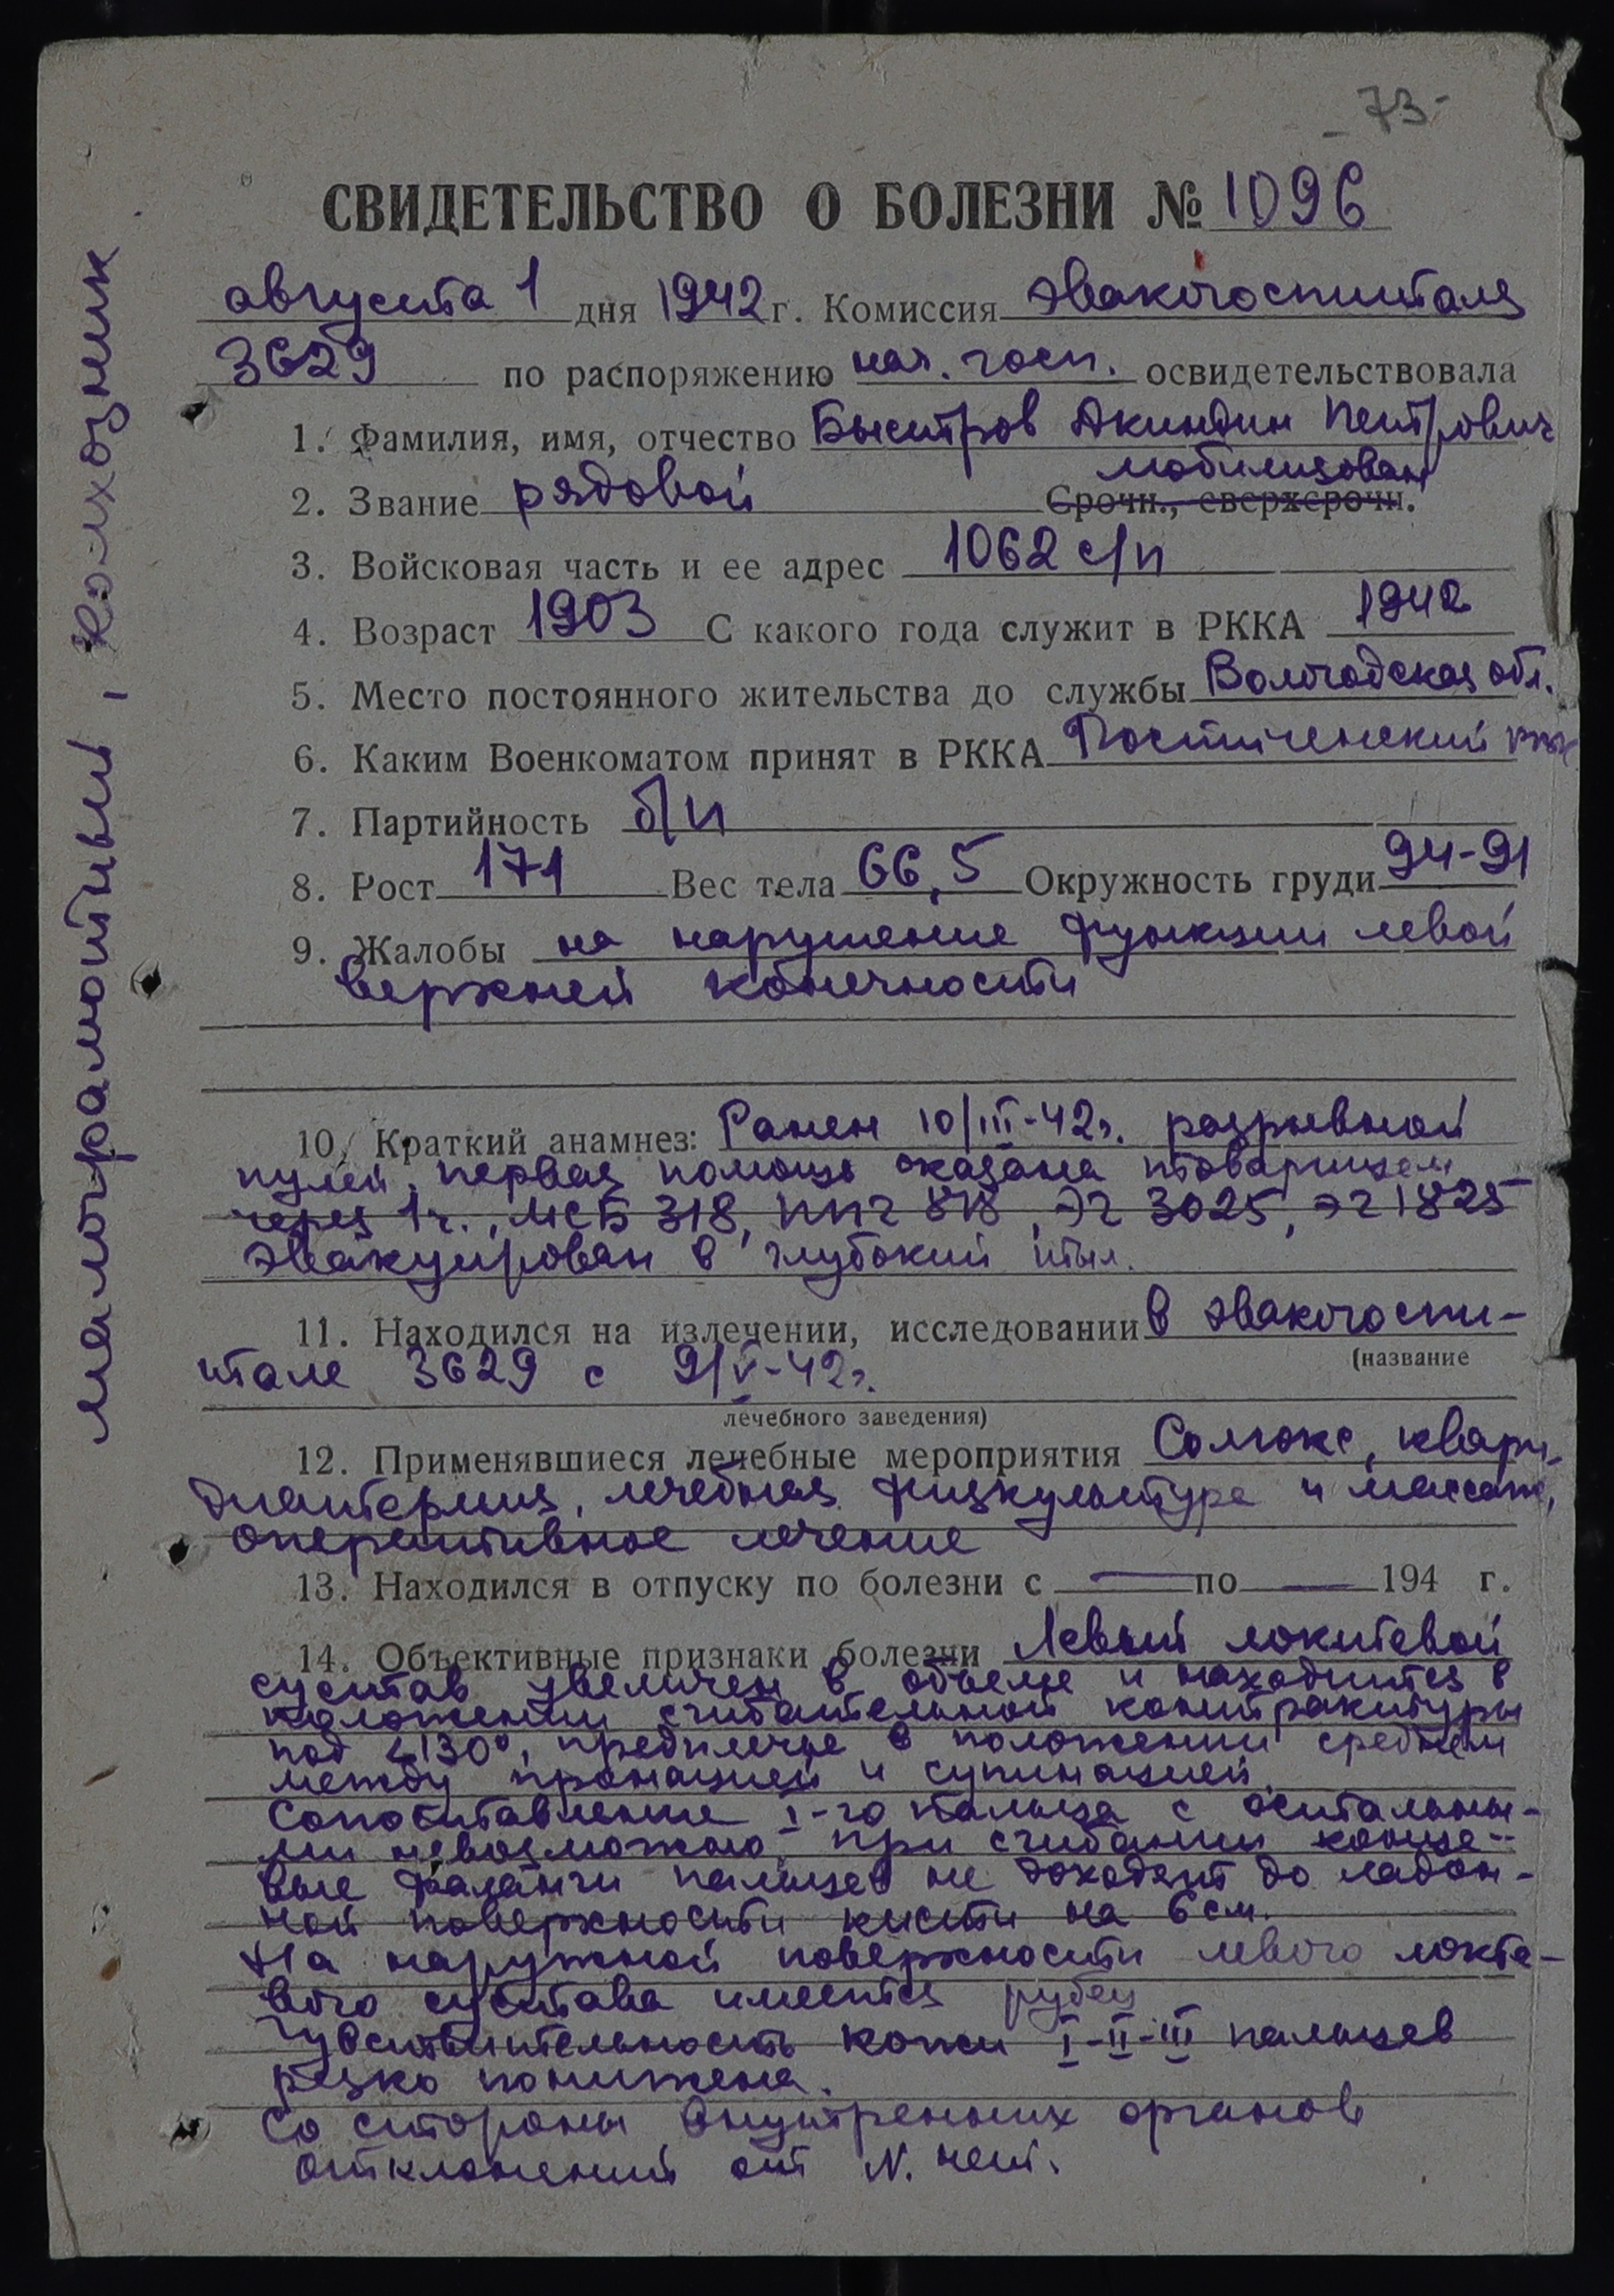 - 73 -
СВИДЕТЕЛЬСТВО О БОЛЕЗНИ № 1096
августа 1 дня 1942 г. Комиссия эвакогоспиталя
3629 по распоряжению нач. госп. освидетельствовала
1. Фамилия, имя, отчество Быстров Акиндин Петрович
мобилизован
2. Звание рядовой Срочн., сверхсрочн.
3. Войсковая часть и ее адрес 1062 с/п
4. Возраст 1903 С какого года служит в РККА 1942
5. Место постоянного жительства до службы Вологодская обл.
6. Каким Военкоматом принят в РККА
7. Партийность б/п
8. Рост 171 Вес тела 66,5 Окружность груди 94-91
9. Жалобы на нарушение функции левой
верхней конечности
10. Краткий анамнез: Ранен 10/III-42г. разрывной
пулей, первая помощь оказана товарищем
через 1ч., МСБ 318, ППГ ЭГ 3025, ЭГ 1825
эвакуирован в глубокий тыл.
11. Находился на излечении, исследовании в эвакогоспи-
(название
тале 3629 с 9/V-42г.
лечебного заведения)
12. Применявшиеся лечебные мероприятия Солюкс, кварц,
диатермия, лечебная физкультура и массаж,
оперативное лечение
13. Находился в отпуску по болезни с — по — 194 г.
14. Объективные признаки болезни Левый локтевой
сустав увеличен в объеме и находится в
положении сгибательной контрактуры
под ∠130°, предплечье в положении среднем
между пронацией и супинацией.
Сопоставление I-го пальца с остальны-
ми невозможно, при сгибании конце-
вые фаланги пальцев не доходят до ладон-
ной поверхности кисти на 6 см.
На наружной поверхности левого локте-
вого сустава имеется рубец
Чувствительность кожи I-II-III пальцев
резко понижена.
Со стороны внутренних органов
отклонений от N. нет.
малограмотный, колхозник